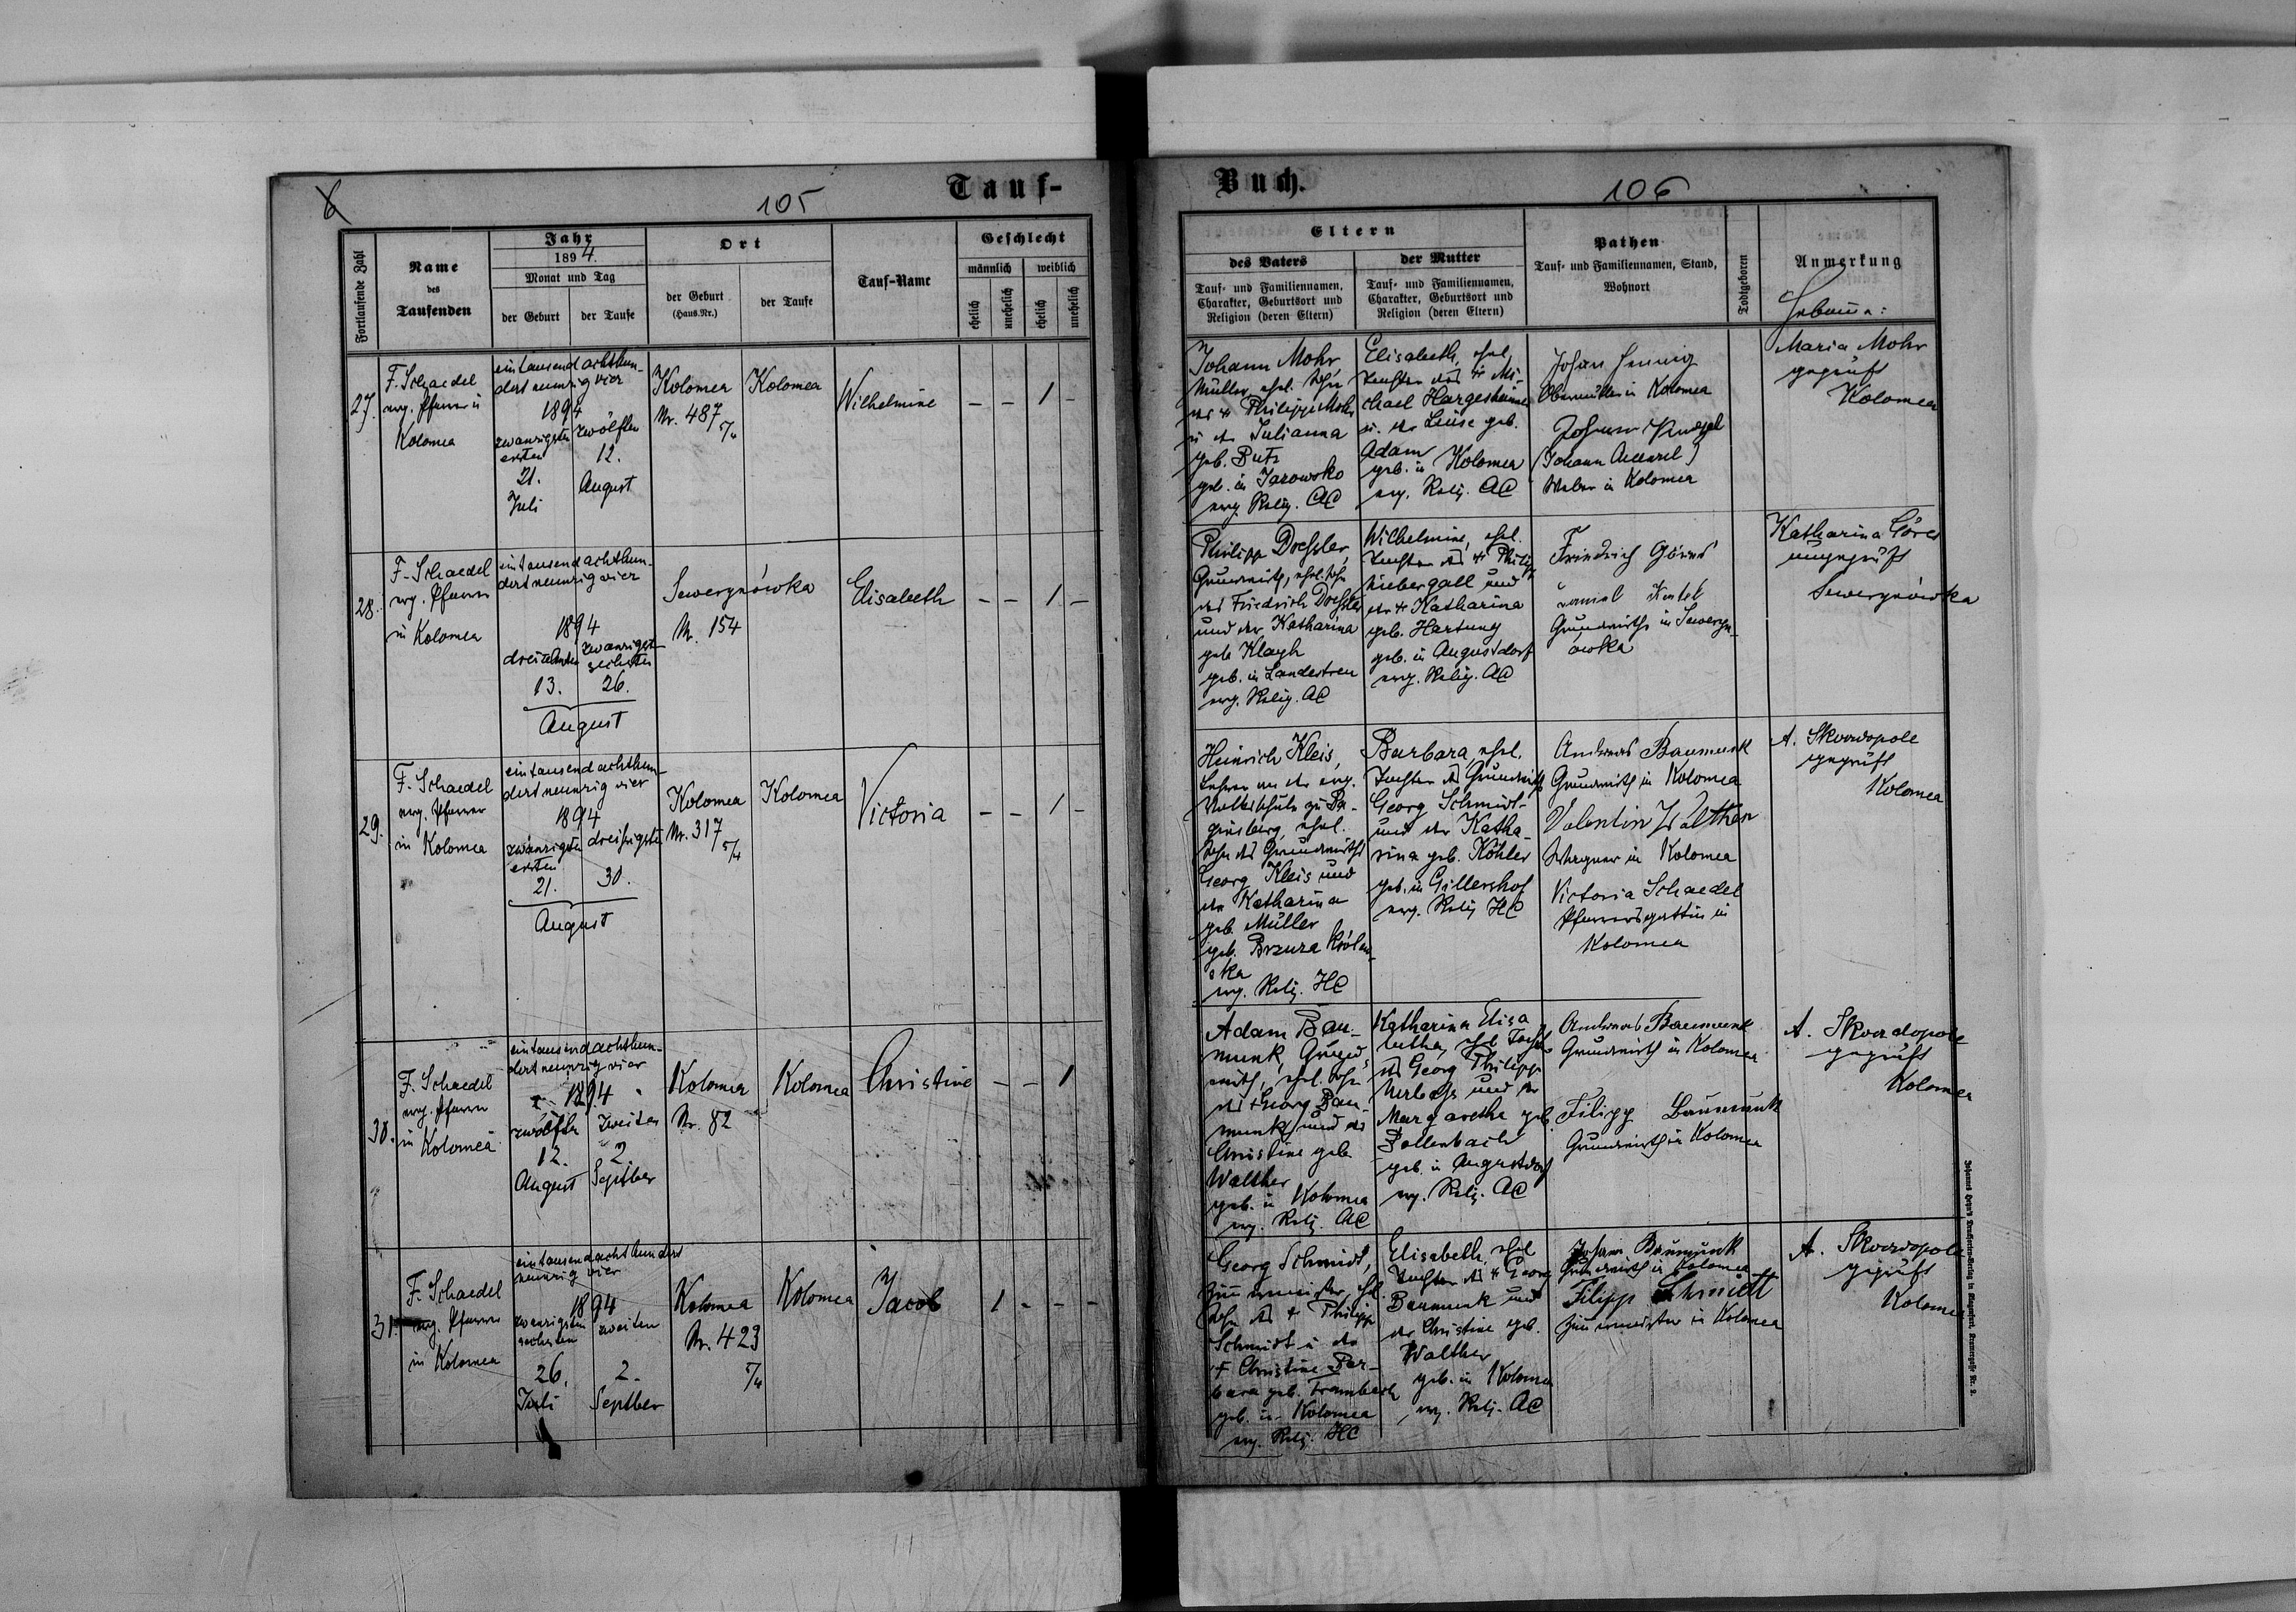 6
105
Tauf-
Fortlaufende Zahl
Name
des
Taufenden
Jahr
1894.
Monat und Tag
der Geburt
der Taufe
Ort
der Geburt
(Haus-Nr.)
der Taufe
Tauf-Name
Geschlecht
männlich
weiblich
ehelich
unehelich
ehelich
unehelich
27.
F. Schaedel
evg. Pfarrer in
Kolomea
eintausendachthun-
dertneunzigvier
1894
zwanzigsten
ersten
21.
Juli
zwölften
12.
August
Kolomea
Nr. 487
Kolomea
Wilhelmine
– – 1 –
28.
F. Schaedel
evg. Pfarrer
in Kolomea
eintausendachthun-
dertneunzigvier
1894
dreizehnten
13.
zwanzigst
sechsten
26.
August
Sewerynówka
Nr. 154
Elisabeth
– – 1 –
29.
F. Schaedel
evg. Pfarrer
in Kolomea
eintausendachthun-
dertneunzigvier
1894
zwanzigsten
ersten
21.
dreißigsten
30.
August
Kolomea
Nr. 317
5/4
Kolomea
Victoria
– – 1 –
30.
F. Schaedel
evg. Pfarrer
in Kolomea
eintausendachthun-
dertneunzigvier
1894
zwölften
12.
August
zweiten
2
Septber
Kolomea
Nr. 82
Kolomea
Christine
– – 1
31.
F. Schaedel
evg. Pfarrer
in Kolomea
eintausendachthundert
neunzig vier
1894
zwanzigsten
sechsten
26.
Juli
zweiten
2.
Septber
Kolomea
Nr. 423
Kolomea
Jacob
1 – – –
Buch.
106
Eltern
des Vaters
Tauf- und Familiennamen,
Charakter, Geburtsort und
Religion (deren Eltern)
der Mutter
Tauf- und Familiennamen,
Charakter, Geburtsort und
Religion (deren Eltern)
Pathen
Tauf- und Familiennamen, Stand,
Wohnort
Todtgeboren
Anmerkung
Hebamme:
Johann Mohr
Müller, ehel. Sohn
des + Philipp Mohr
u. der Julianna
geb. Butz
geb. in Jarowsko
evg. Relig. AC
Elisabeth, ehel.
Tochter des + Mi-
chael Hargesheimer
u. der Luise geb.
Adam
geb. in Kolomea
evg. Relig. AC
Johan Hennig
Obermüller in Kolomea
Johann
(Johann )
Weber in Kolomea
Maria Mohr
geprüft
Kolomea
Philipp Doeßler,
Grundwirth, ehel. Sohn
des Friedrich Doeßler
und der Katharina
geb.
geb. in Landestreu
evg. Relig. AC
Wilhelmine, ehel.
Tochter des + Philipp
Niebergall und
der + Katharina
geb. Hartung
geb. in Augustdorf
evg. Relig. AC
Friedrich Göres
Grundwirthe in Seweryn-
ówka
Katharina Göres
ungeprüft
Sewerynówka
Heinrich Kleis,
Lehrer an der evg.
Volksschule zu Ba-
ginsberg, ehel.
Sohn des Grundwirths
Georg Kleis und
der Katharina
geb. Müller
geb. Brzuza Królew-
ska
evg. Relig. HC
Barbara, ehel.
Tochter des Grundwirths
Georg Schmidt
und der Katha-
rina geb. Köhler
geb. in Gillershof
evg. Relig HC
Andreas Baumunk
Grundwirth in Kolomea
Valentin Walther
Wagner in Kolomea
Victoria Schaedel
Pfarrersgattin in
Kolomea
A. Skowdopole
geprüft
Kolomea
Adam Bau-
munk, Grund-
wirth, ehel. Sohn
des Georg Bau-
munk und der
Christine geb.
Walther
geb. in Kolomea
evg. Relig. AC
Katharina Elisa
betha, ehel Tochter
des Georg Philipp
und der
Margaretha geb.
Bollenbach
geb. in Augustdorf
evg. Relig. AC
Andreas Baumunk
Grundwirth in Kolomea
Filipp Baumunk
Grundwirth in Kolomea
A. Skowdopole
geprüft
Kolomea
Georg Schmidt,
Zimmermeister, ehel.
Sohn des + Philipp
Schmidt u. der
+ Christine Bar-
bara geb. Trambach
geb. in Kolomea
evg. Relig. HC
Elisabeth, ehel
Tochter des + Georg
Baumunk und
der Christine geb.
Walther
geb. in Kolomea
evg. Relig. AC
Johann Baumunk
Grundwirth in Kolomea
Filipp Schmidt
Zimmermeister in Kolomea
A. Skowdopole
geprüft
Kolomea